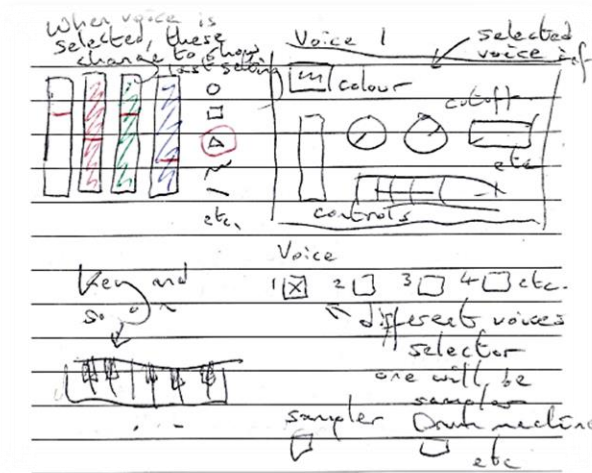 When voice is
selected, these
change to show
last setting
etc.
Voice 1
selected
voice
colour
cutoff
etc
controls
Voice
1 2 3 4 etc.
different voices
selector
one will be
sampler
Key
sampler
Drum machine
etc